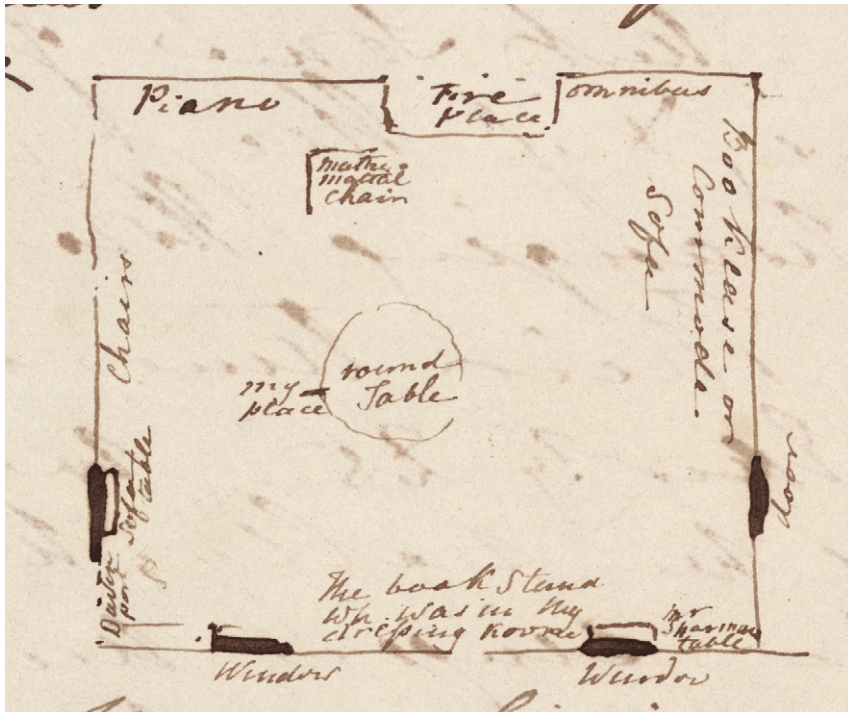 Piano
Fire
place
omnibus
mathe
matical
chair
Bookcase or
Commode
Sofa
Chairs
my
place
round
Table
Sofa
table
door
The book Stand
wh. was in my
dressing Room
Mr
table
Window
Window